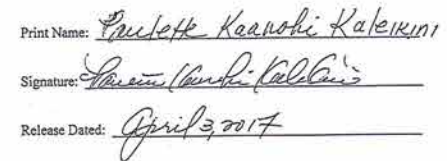 Print Name: Paulette Kaanohi Kaleikini
Signature: Paulette Kaanohi Kaleikini
Release Dated: April 3, 2017